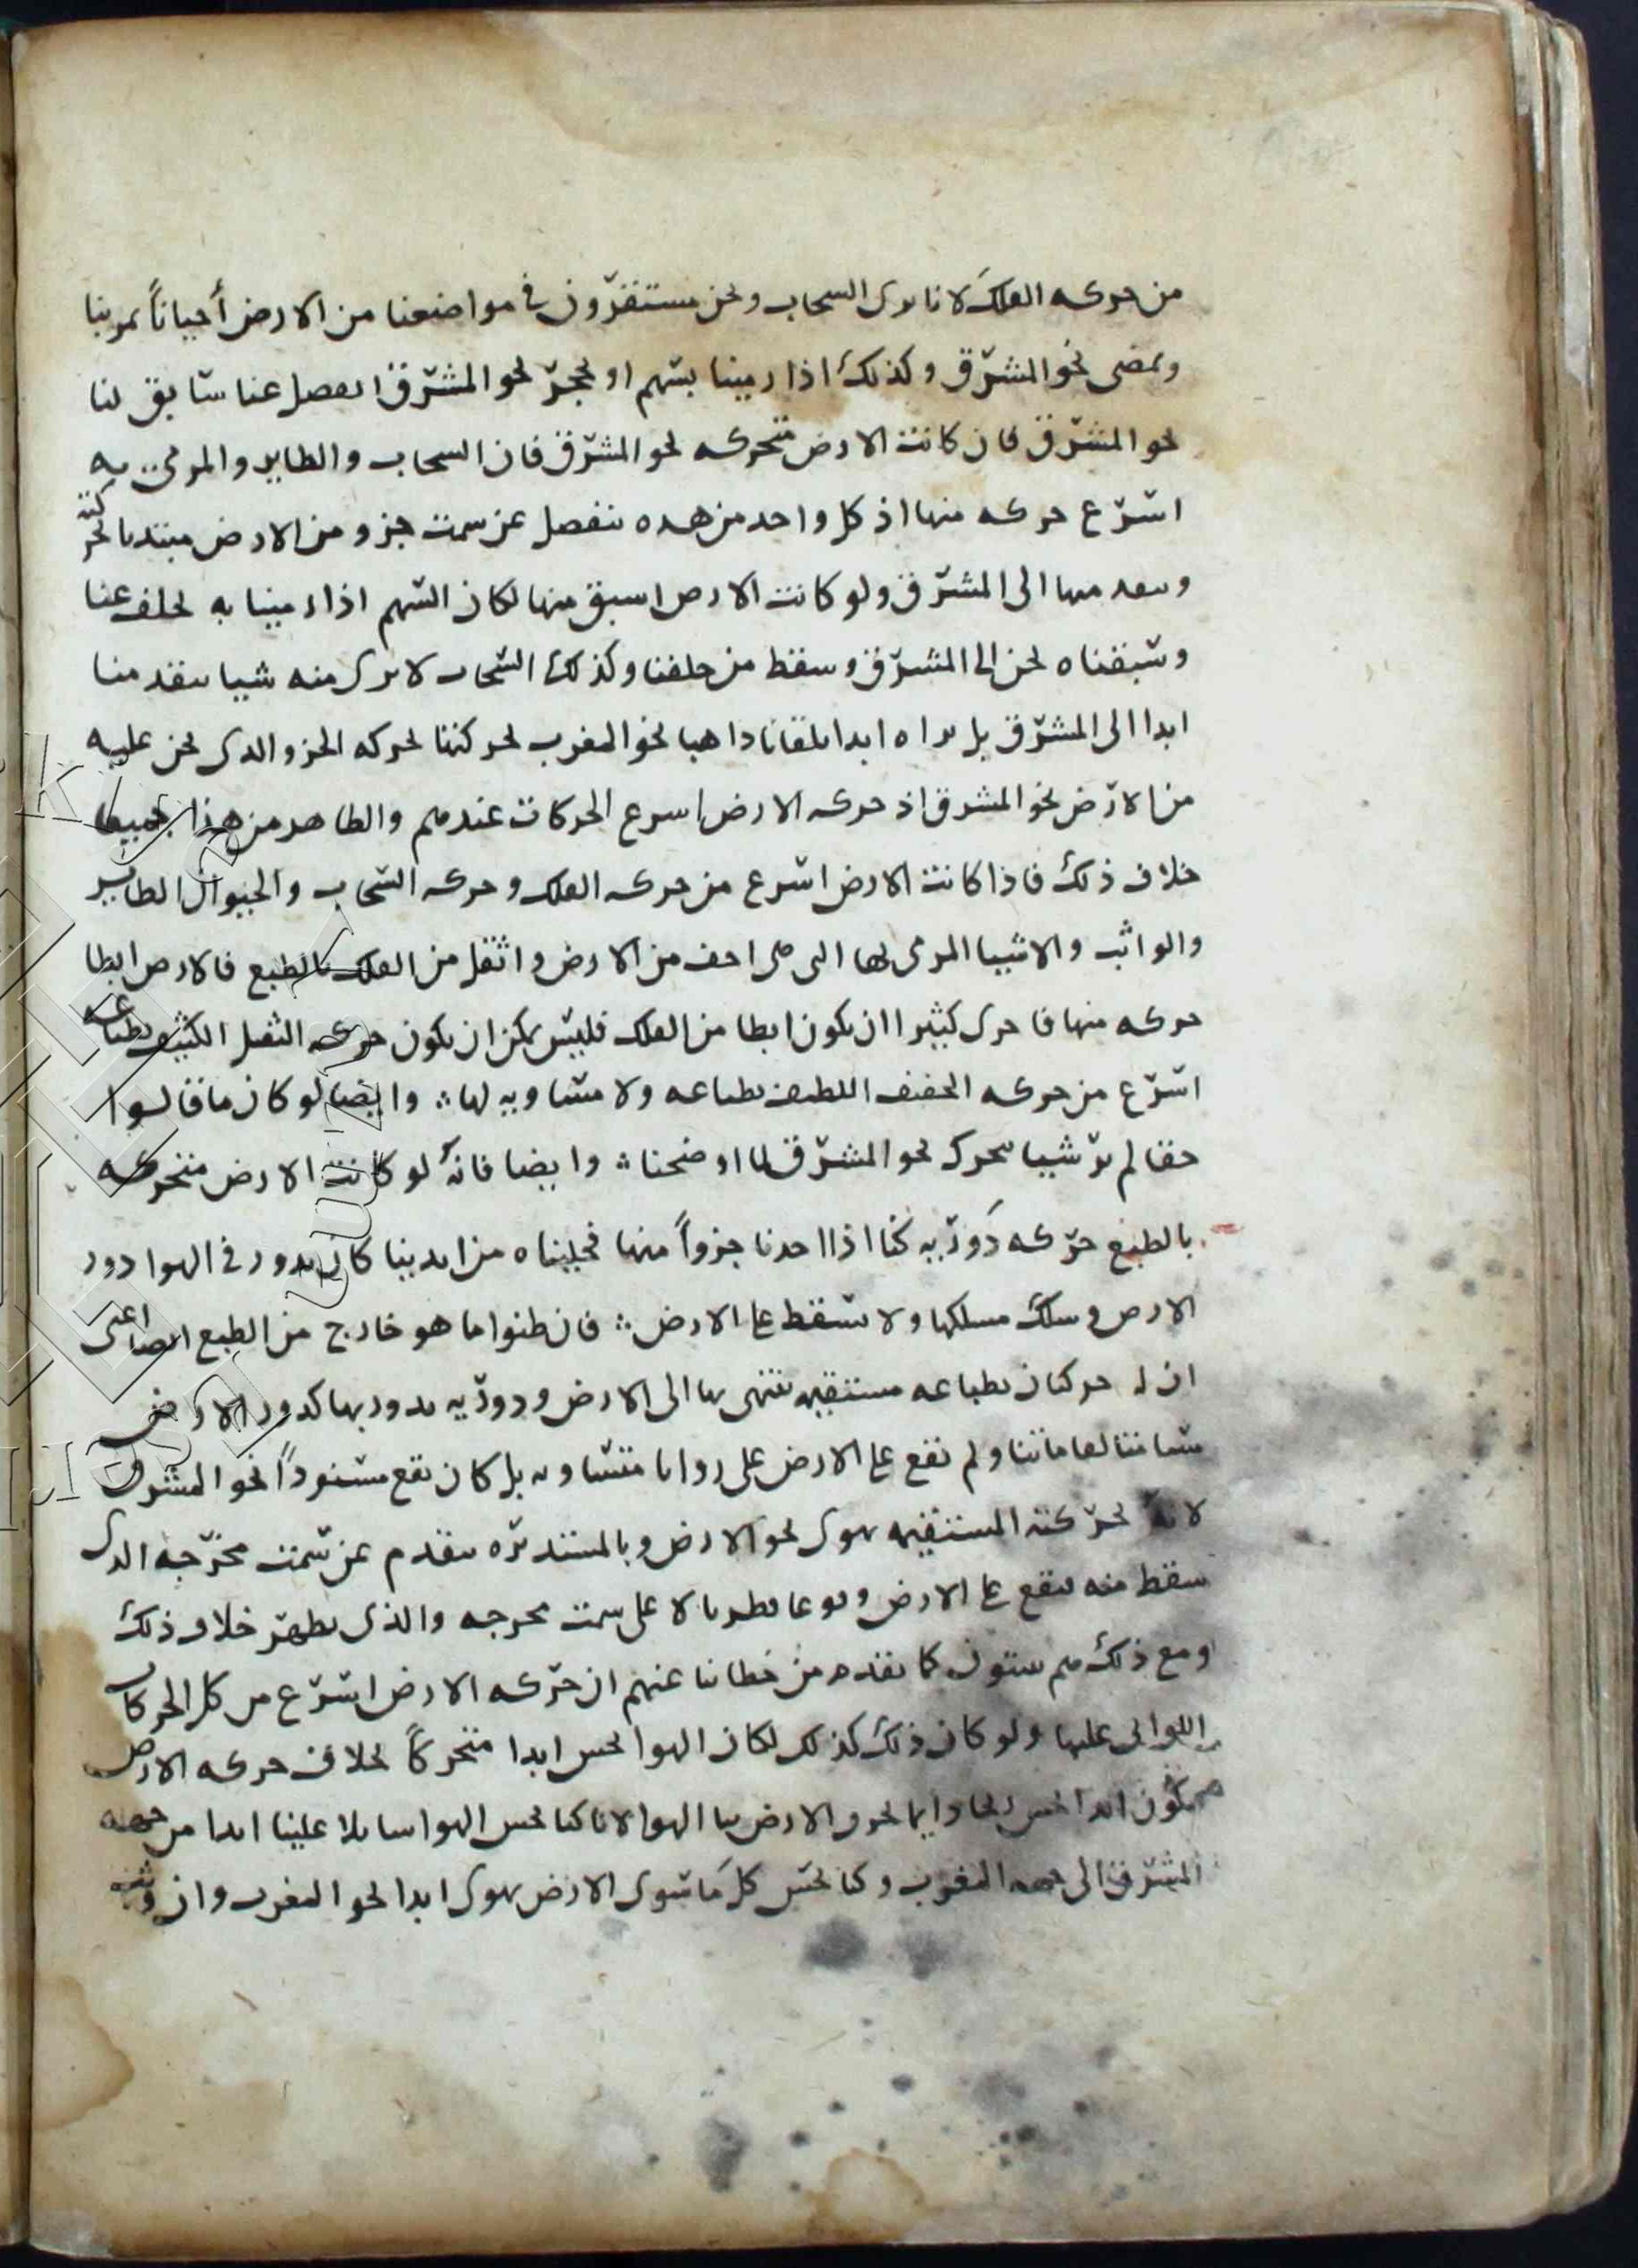 من حركه الفلك لانا نرى السحاب ونحن مستقرّون في مواضعنا من الارض أحياناً يمر بنا
ويمضى نحو المشرق وكذلك اذا رمينا بسهم او بحجر نحو المشرق انفصل عنا سابق لنا
نحو المشرق فان كانت الارض متحركه نحو المشرق فان السحاب والطاير والمرمى به
اسرع حركه منها اذ كل واحد من هده ينفصل عن سمت جزو من الارض مبتديا بحركته
وسعد منها الى المشرق ولو كانت الارض اسبق منها لكان السهم اذا رمينا به تخلف عنا
وسبقناه نحن الى المشرق وسقط من خلفنا وكذلك السحاب لا نرى منه شيا يتقدمنا
ابدا الى المشرق بل نراه ابدا تلقانا داهبا نحو المغرب لحركتنا بحركه الجزو الدى نحن عليه
من الارض نحو المشرق اذ حركه الارض اسرع الحركات عندهم والظاهر من هذا جميعا
خلاف ذلك فاذا كانت الارض اسرع من حركه الفلك وحركه السحاب والحيوان الطاير
والواثب والاشيا المرمى بها التى هى اخف من الارض واثقل من الفلك بالطبع فالارض ابطا
حركه منها فاحرى كثيرا ان يكون ابطا من الفلك فليس يمكن ان يكون حركه الثقيل الكثيف بطباعه
اسرع من حركه الخفيف اللطيف بطباعه ولا مساويه لها وايضا لو كان ما قالوا
حقا لم نر شيا يتحرك نحو المشرق لما اوضحنا وايضا فانه لو كانت الارض متحركه
بالطبع حركه دَوريه كنا اذا اخدنا جزواً منها فخليناه من ايدينا كان يدور في الهوا دور
الارض وسلك مسلكها ولا يسقط على الارض فان ظنوا ما هو خارج من الطبع ايضا اعنى
ان له حركتان بطباعه مستقيمه ينتهى بها الى الارض ودوريه يدور بها كدور الارض
سامتنا لها ماتنا ولم تقع على الارض على زوايا متساويه بل كان يقع نحو المشرق
لانه بحركته المستقيمه يهوى نحو الارض وبالمستديره يتقدم عن سمت مخرجه الدى
سقط منه فيقع على الارض وقوعا قطريا لا على سمت مخرجه والذى يظهر خلاف ذلك
ومع ذلك هم يثبتون كما تقدم من خطابنا عنهم ان حركه الارض اسرع من كل الحركات
اللواتى عليها ولو كان ذلك كذلك لكان الهوا يحس ابدا متحركاً بخلاف حركه الارض
فيكون ابدا نحس دايما الارض الهوا لانا كنا نحس الهوا سايلا علينا ابدا من جهه
المشرق الى جهه المغرب وكنا نحس كل ما سوى الارض يهوى ابدا نحو المغرب وان وثبه